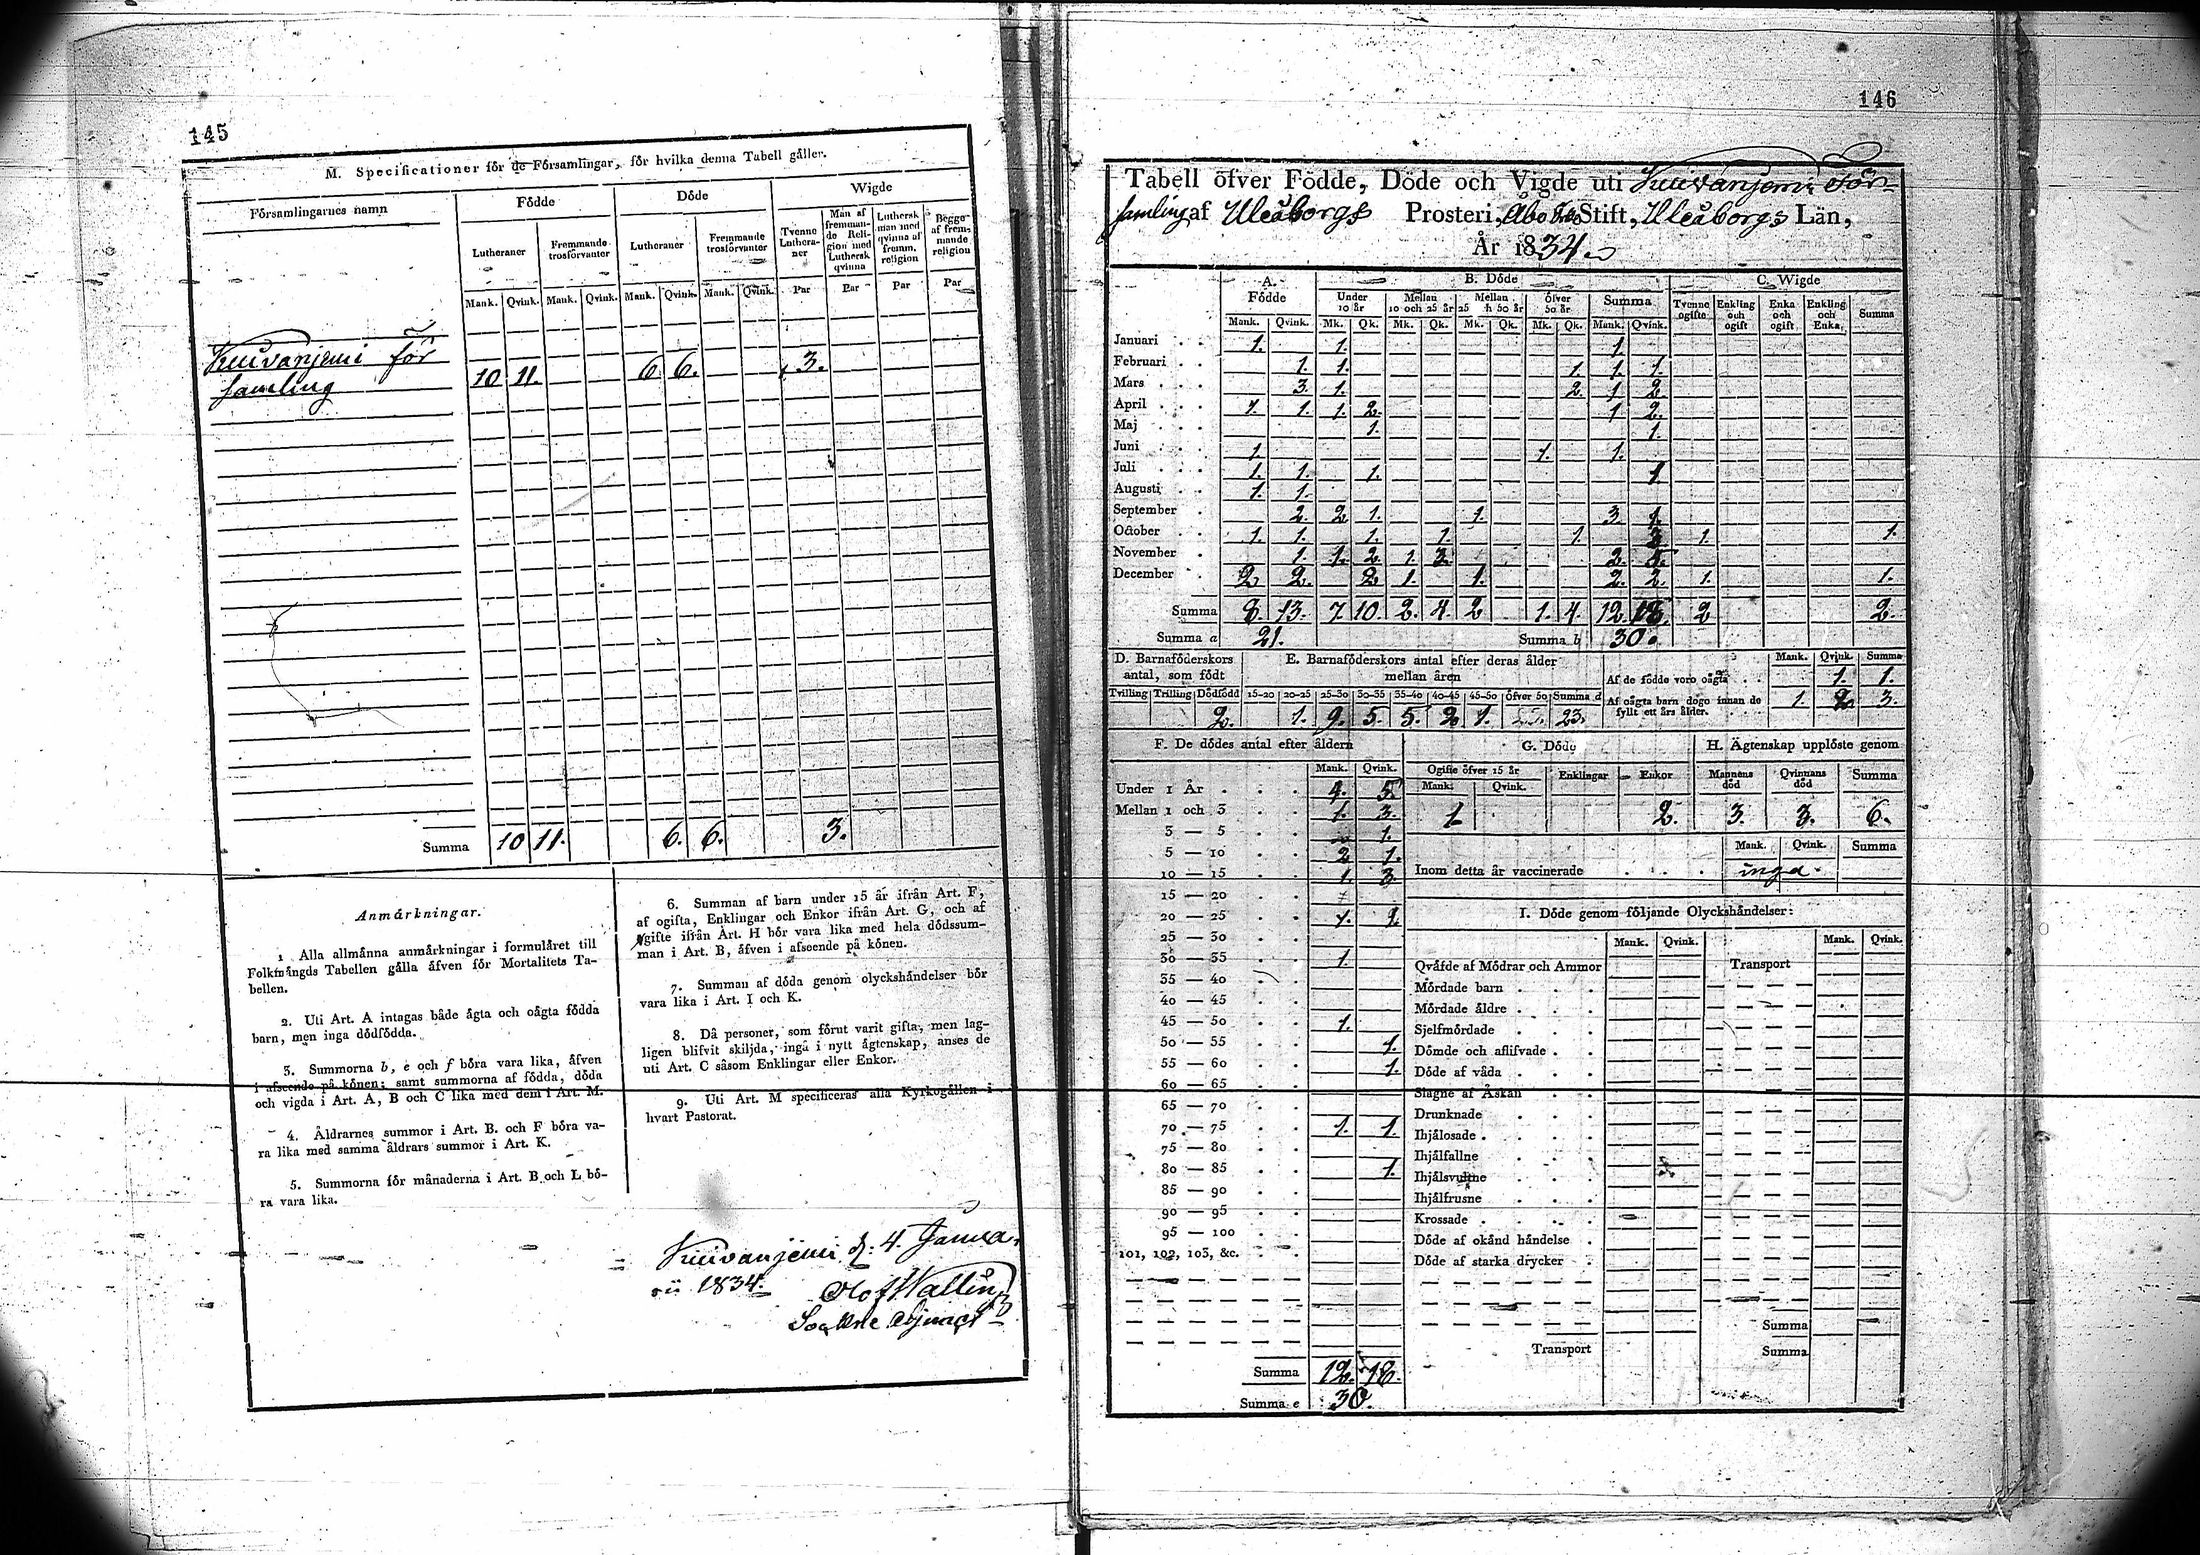 145
M. Specificationer för de Församlingar, för hvilka denna Tabell gäller.
Församlingarnes namn
Födde
Döde
Wigde
Lutheraner
Fremmande trosförvanter
Lutheraner
Fremmande trosförvanter
Tvenne Lutheraner
Man af fremmande Religion med Luthersk qvinna
Luthersk man med qvinna af fremm. religion
Begge af fremmande religion
Mank. Qvink. Mank. Qvink. Mank. Qvink. Mank. Qvink. Par Par Par Par
Kuivaniemi För
samling 10 11. 6 6. 3.
Summa 10 11. 6. 6. 3.
Anmärkningar.
1 Alla allmänna anmärkningar i formuläret till
Folkmängds Tabellen gälla äfven för Mortalitets Ta-
bellen.
2. Uti Art. A intagas både ägta och oägta födda
barn, men inga dödfödda.
3. Summorna b, e och f böra vara lika, äfven
i afseende på könen; samt summorna af födda, döda
och vigda i Art. A, B och C lika med dem i Art. M.
4. Åldrarnes summor i Art. B. och F böra va-
ra lika med samma åldrars summor i Art. K.
5. Summorna för månaderna i Art. B och L bö-
ra vara lika.
6. Summan af barn under 15 år ifrån Art. F,
af ogifta, Enklingar och Enkor ifrån Art. G, och af
gifte ifrån Art. H bör vara lika med hela dödssum-
man i Art. B, äfven i afseende på könen.
7. Summan af döda genom olyckshändelser bör
vara lika i Art. I och K.
8. Då personer, som förut varit gifta, men lag-
ligen blifvit skiljda, ingå i nytt ägtenskap, anses de
uti Art. C såsom Enklingar eller Enkor.
9. Uti Art. M specificeras alla Kyrkogällen i
hvart Pastorat.
Kuivaniemi d. 4. Janua-
rii 1834.
Olof Wallin
146
Tabell öfver Födde, Döde och Vigde uti Kuivaniemi För-
samling af Uleåborgs Prosteri, Åbo Stift, Uleåborgs Län,
År 1834.
A. Födde
B. Döde
C. Wigde
Under 10 år
Mellan 10 och 25 år
Mellan 25 h 50 år
Öfver 50 år
Summa
Tvenne ogifte
Enkling och ogift
Enka och ogift
Enkling och Enka
Summa
Mank. Qvink. Mk. Qk. Mk. Qk. Mk. Qk. Mk. Qk. Mank. Qvink.
Januari 1. 1. 1.
Februari 1. 1. 1. 1. 1.
Mars 3. 1. 2. 1 2
April 1. 1. 1. 2. 1 2.
Maj 1. 1.
Juni 1. 1. 1.
Juli 1. 1. 1. 1
Augusti 1. 1.
September 2. 2 1. 1. 3. 1.
October 1. 1. 1. 1. 1. 3 1. 1.
November 1. 1. 2. 1. 3. 2. 5.
December 2 2. 2 1. 1. 2. 2. 1. 1.
Summa 8. 13. 7. 10. 2. 4. 2 1. 4. 12. 18. 2 2.
Summa a 21. Summa b 30.
D. Barnaföderskors antal, som födt
Tvilling Trilling Dödfödd
2.
E. Barnaföderskors antal efter deras ålder mellan åren
15-20 20-25 25-30 30-35 35-40 40-45 45-50 Öfver 50 Summa d
1. 9. 5. 5. 2 1. 23.
Mank. Qvink. Summa
Af de födde voro oägta 1. 1.
Af oägta barn dogo innan de fyllt ett års ålder. 1. 2. 3.
F. De dödes antal efter åldern
Mank. Qvink.
Under 1 År 4. 5.
Mellan 1 och 3 1. 3.
3 — 5 1.
5 — 10 2 1.
10 — 15 1. 3.
15 — 20
20 — 25 1. 1.
25 — 30
30 — 35 1.
35 — 40
40 — 45
45 — 50 1.
50 — 55 1.
55 — 60 1.
60 — 65
65 — 70
70 — 75 1. 1.
75 — 80
80 — 85 1.
85 — 90
90 — 95
95 — 100
101, 102, 103, &c.
Summa 12. 18.
Summa e 30.
G. Döde
Ogifte öfver 15 år
Mank. Qvink.
Enklingar
Enkor
1 2.
H. Ägtenskap upplöste genom
Mannens död
Qvinnans död
Summa
3. 3. 6.
Mank. Qvink. Summa
Inom detta år vaccinerade inga.
I. Döde genom följande Olyckshändelser:
Mank. Qvink. Mank. Qvink.
Qväfde af Mödrar och Ammor
Mördade barn
Mördade äldre
Sjelfmördade
Dömde och aflifvade
Döde af våda
Slagne af Åskan
Drunknade
Ihjälosade
Ihjälfallne
Ihjälsvultne
Ihjälfrusne
Krossade
Döde af okänd händelse
Döde af starka drycker
Transport
Transport
Summa
Summa